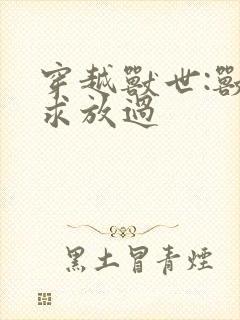 穿越獸世:獸
求放過
黑土冒青煙